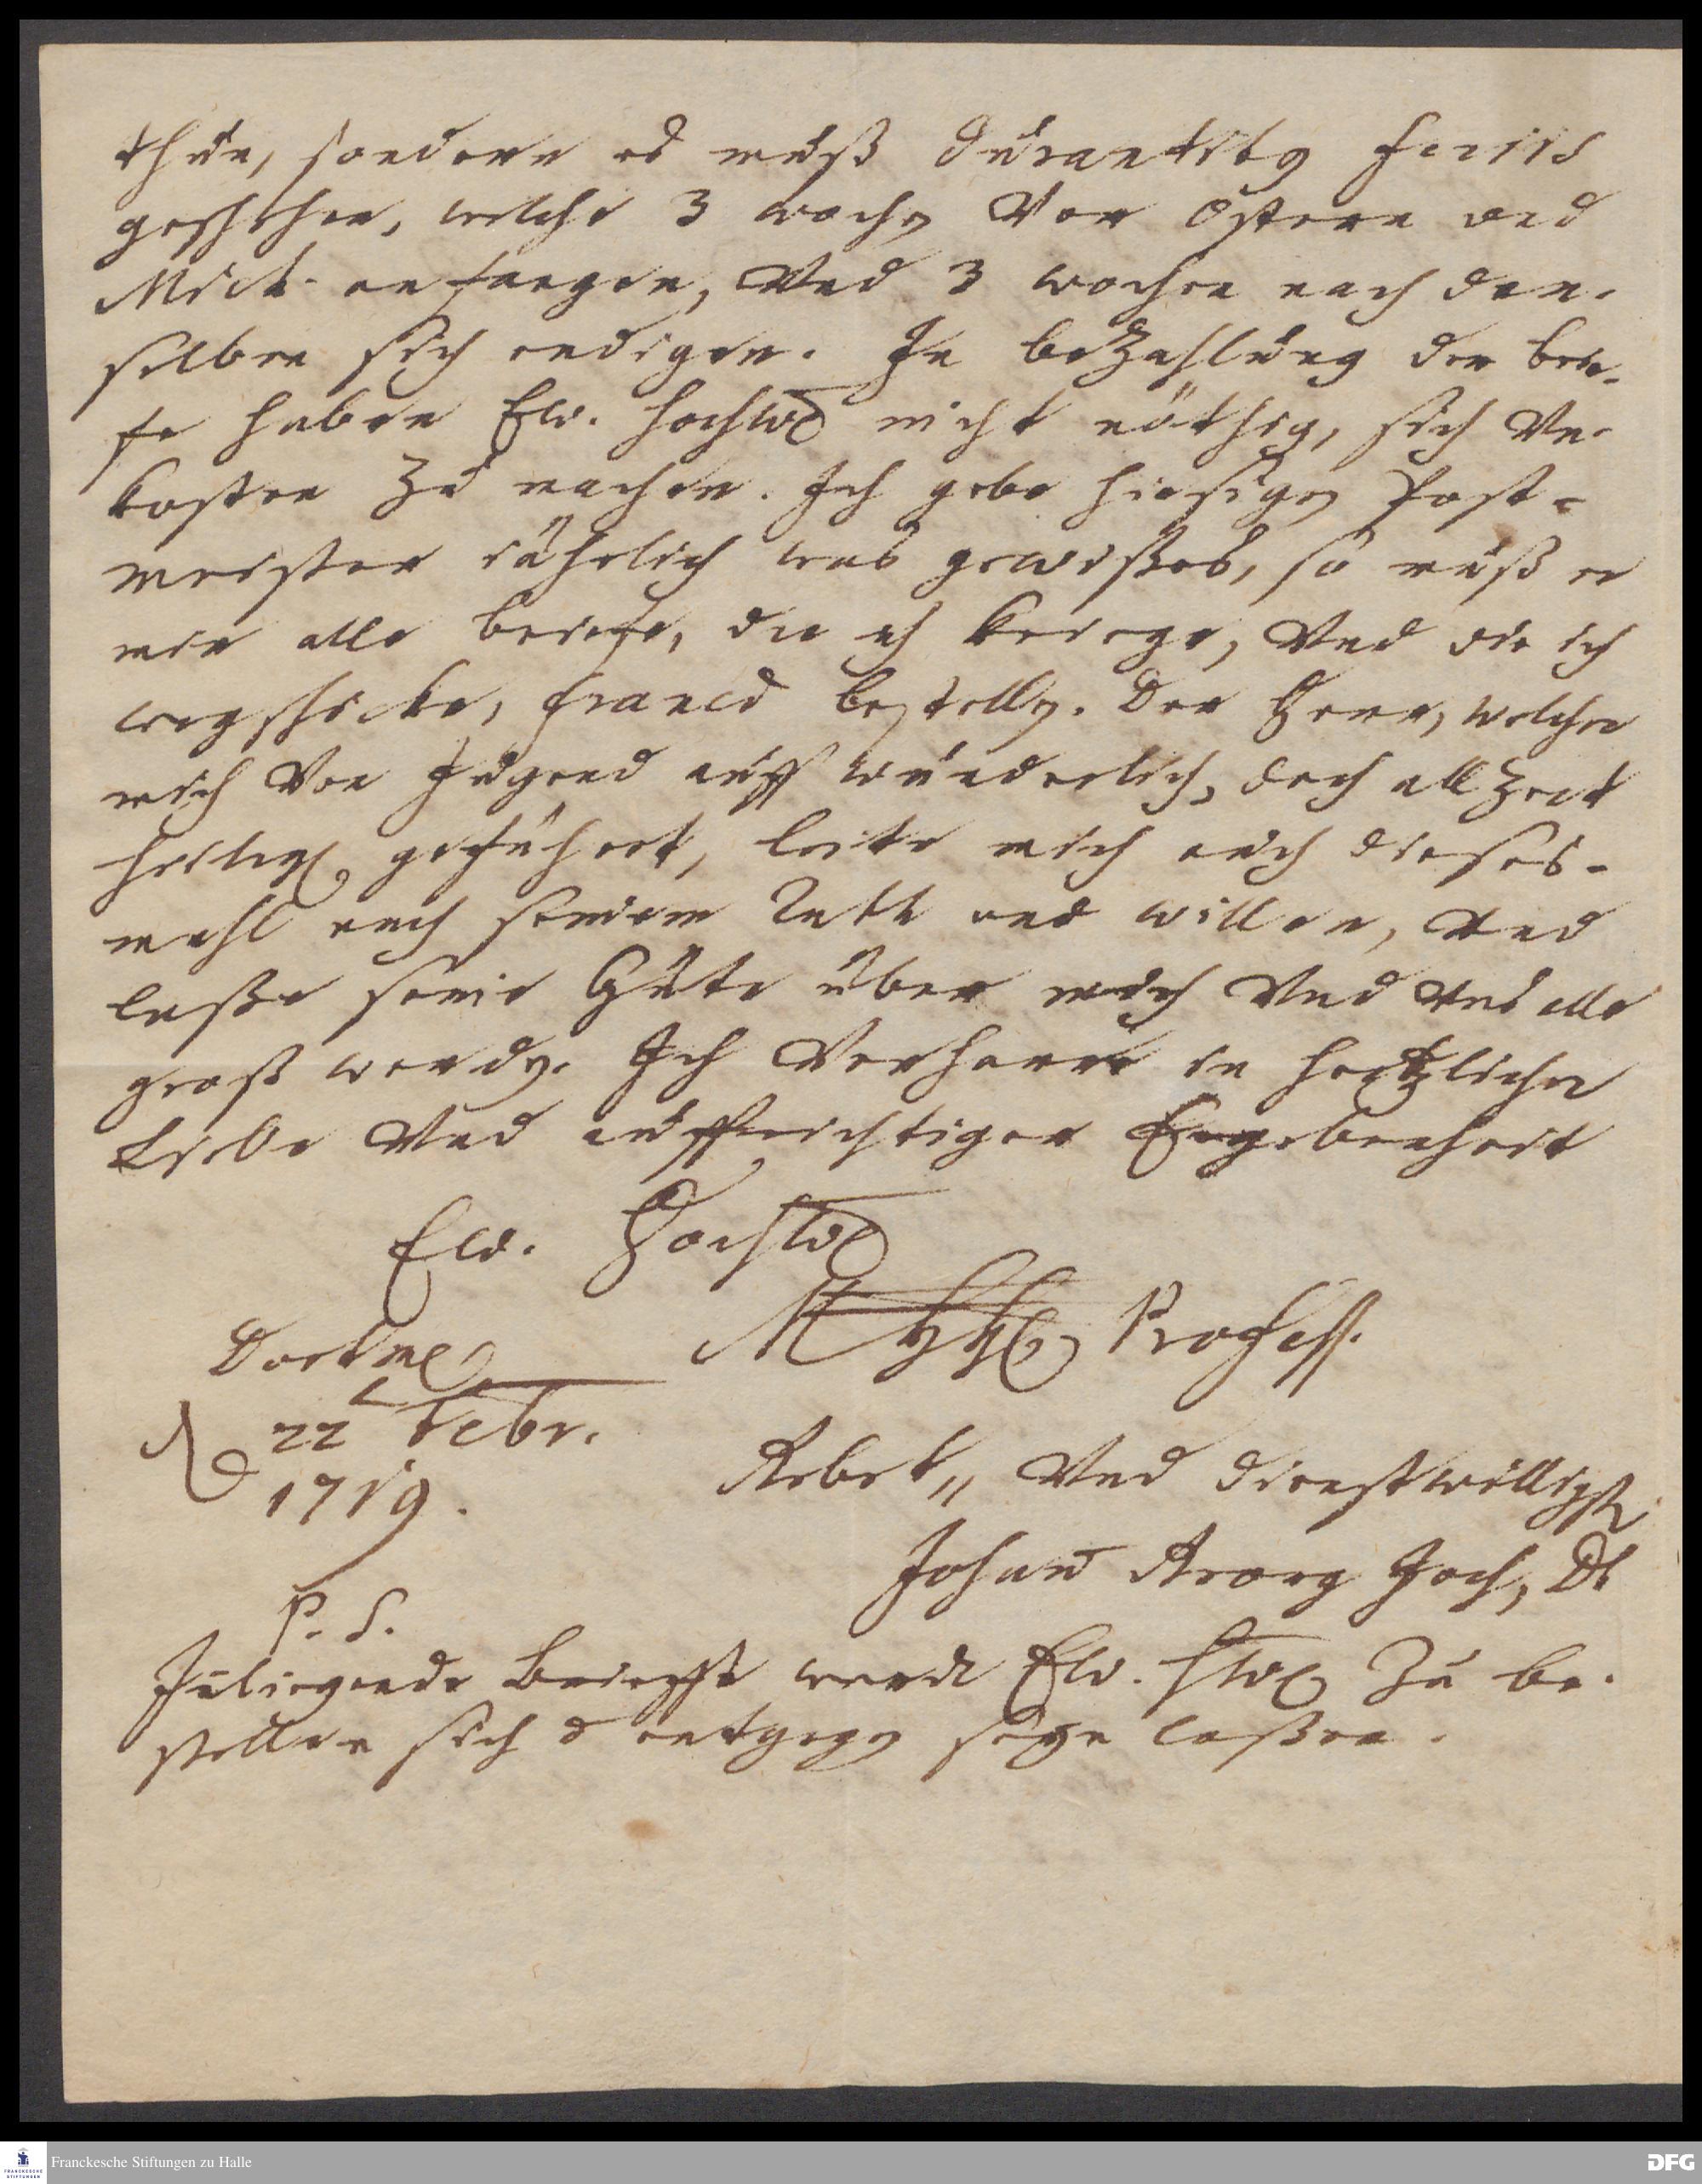 thun, sondern es muß durantibus feriis
geschehen, welche 3 wochen Vor Ostern und
Mich. anfangen, Und 3 wochen nach den-
selben sich endigen. In beZahlung der brie-
fe haben Ew. Hochw. nicht nöthig, sich Un-
kosten Zu machen. Ich gebe hiesigen Post-
meister iährlich was gewißes, so muß er
mir alle briefe, die ich kriege, Und die ich
wegschicke, franco bestellen. Der Herr, welcher
mich Von Jugend auff wunderlich, doch allZeit
heilig geführet, leite mich auch dieses-
mahl nach seinem Rath und willen, Und
laße seine Güte über mich Und Uns alle
groß werden. Ich Verharre in hertzlicher
Liebe Und auffrichtiger Ergebenheit
Ew. Hochw.
Dortm. Professr.
22 Febr.
1719.
Gebet" Und dienstwilligster
Johann Georg Joch, D.
P. S.
Inliegende Brieffe werden Ew. Hw. Zu be-
stellen sich nicht entgegen seyn laßen.
Franckesche Stiftungen zu Halle
FRANCKESCHE
STIFTUNGEN
DFG